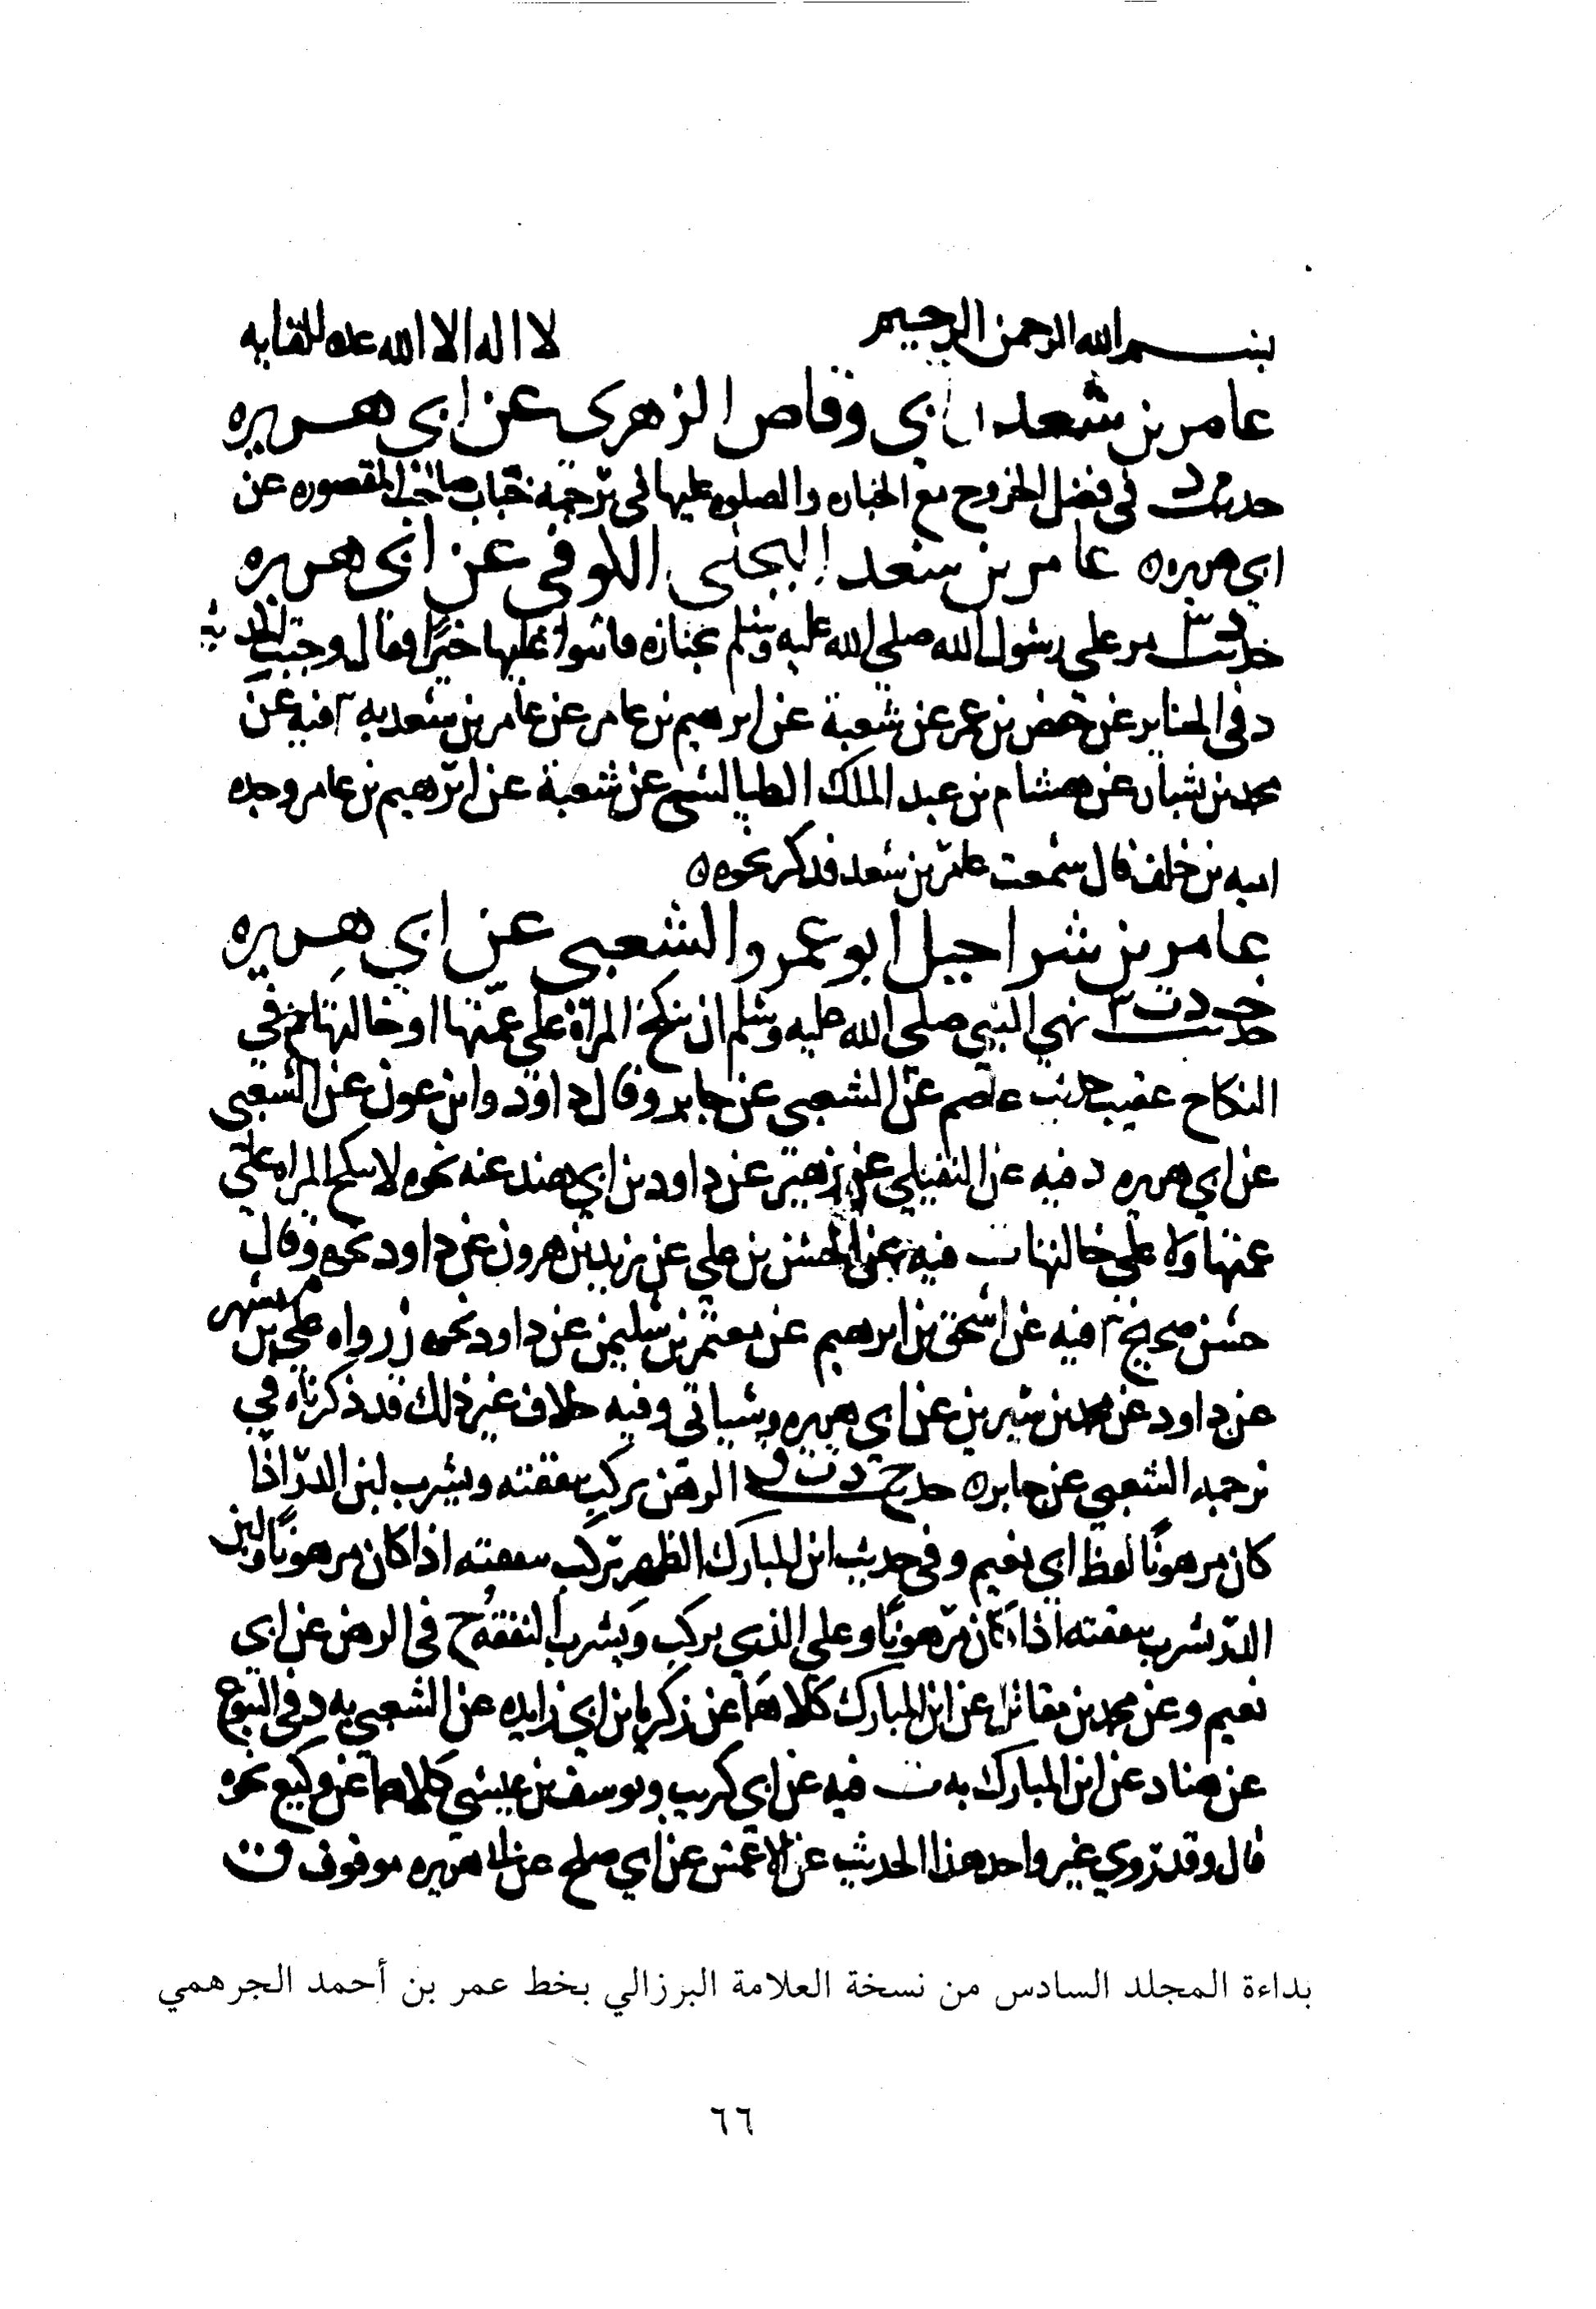 بسم الله الرحمن الرحيم لا اله الا الله عده للقايه
عامر بن سعد بن ابي وقاص الزهري عن ابي هريره
حديث م د في فضل الخروج مع الجنازه والصلوه عليها في ترجمة خباب صاحب المقصوره عن
ابي هريره ه عامر بن سعد البجلي الكوفي عن ابي هريره
حديث د س مر على رسول الله صلى الله عليه وسلم بجنازه فاثنوا عليها خيرا فقال وجبت الحديث
د في الجنايز عن حفص بن عمر عن شعبة عن ابرهيم بن عامر عن عامر بن سعد به س فيه عن
محمد بن بشار عن هشام بن عبد الملك الطيالسي عن شعبة عن ابرهيم بن عامر وجده
اميه بن خلف قال سمعت عامر بن سعد فذكر نحوه ه
عامر بن شراحيل ابو عمرو الشعبي عن ابي هريره
حديث خ د ت س نهى النبي صلى الله عليه وسلم ان تنكح المراة على عمتها او خالتها خ في
النكاح عقيب حديث عاصم عن الشعبي عن جابر وقال داود وابن عون عن الشعبي
عن ابي هريره د فيه عن النفيلي عن زهير عن داود بن ابي هند عنه نحوه لا تنكح المراه على
عمتها ولا على خالتها ت فيه عن الحسن بن علي عن يزيد بن هرون عن داود نحوه وقال
حسن صحيح س فيه عن اسحق بن ابرهيم عن معتمر بن سليمن عن داود نحوه ز رواه علي بن مسهر
عن داود عن محمد بن سيرين عن ابي هريره وسياتي وفيه خلاف غير ذلك قد ذكرناه في
ترجمه الشعبي عن جابر ه حديث خ د ت ق الرهن يركب بنفقته ويشرب لبن الدر اذا
كان مرهونا لفظ ابي نعيم وفي حديث ابن المبارك الظهر يركب بنفقته اذا كان مرهونا ولبن
الدر يشرب بنفقته اذا كان مرهونا وعلى الذي يركب ويشرب النفقه خ في الرهن عن ابي
نعيم وعن محمد بن مقاتل عن ابن المبارك كلاهما عن زكريا بن ابي زايده عن الشعبي به د في البيوع
عن هناد عن ابن المبارك به ت فيه عن ابي كريب ويوسف بن عيسى كلاهما عن وكيع نحوه
قال وقد روي غير واحد هذا الحديث عن الاعمش عن ابي صلح عن ابي هريره موقوف ق
بداءة المجلد السادس من نسخة العلامة البرزالي بخط عمر بن أحمد الجرهمي
٦٦